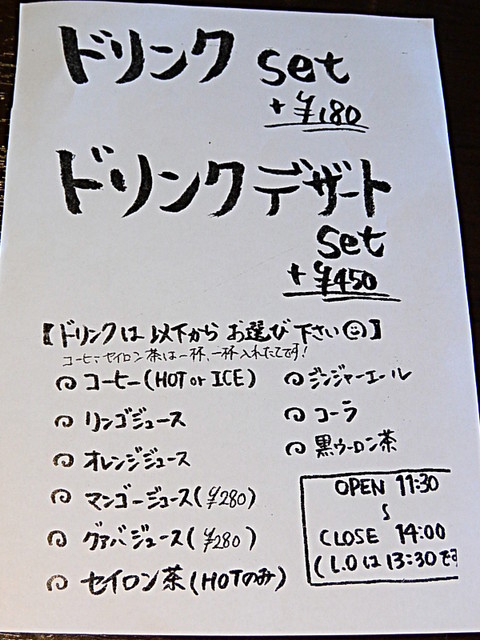 ドリンク set
+¥180
ドリンクデザート
set
+¥450
【ドリンクは以下からお選び下さい☺】
コーヒーセイロン茶は一杯、一杯入れたてです!
コーヒー(HOT or ICE)
リンゴジュース
オレンジジュース
マンゴージュース(¥280)
グァバジュース(¥280)
セイロン茶(HOTのみ)
ジンジャーエール
コーラ
黒ウーロン茶
OPEN 11:30
〜
CLOSE 14:00
(L.Oは13:30です